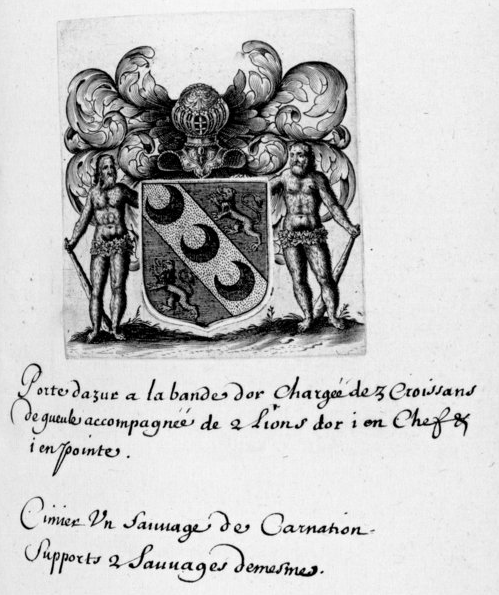 Porte dazur a la bande dor Chargéé de 3 Croissans
de gueule accompagnéé de 2 Lions dor i en Chef &
i en pointe.
Cimier Vn sauuage de Carnation.
Supports 2 Sauuages demesme.